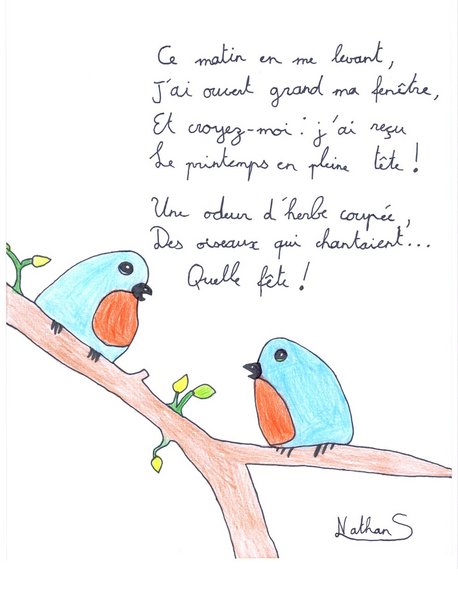 Ce matin en me levant,
J'ai ouvert grand ma fenêtre,
Et croyez-moi : j'ai reçu
Le printemps en pleine tête !
Une odeur d'herbe coupée,
Des oiseaux qui chantaient...
Quelle fête !
Nathan S